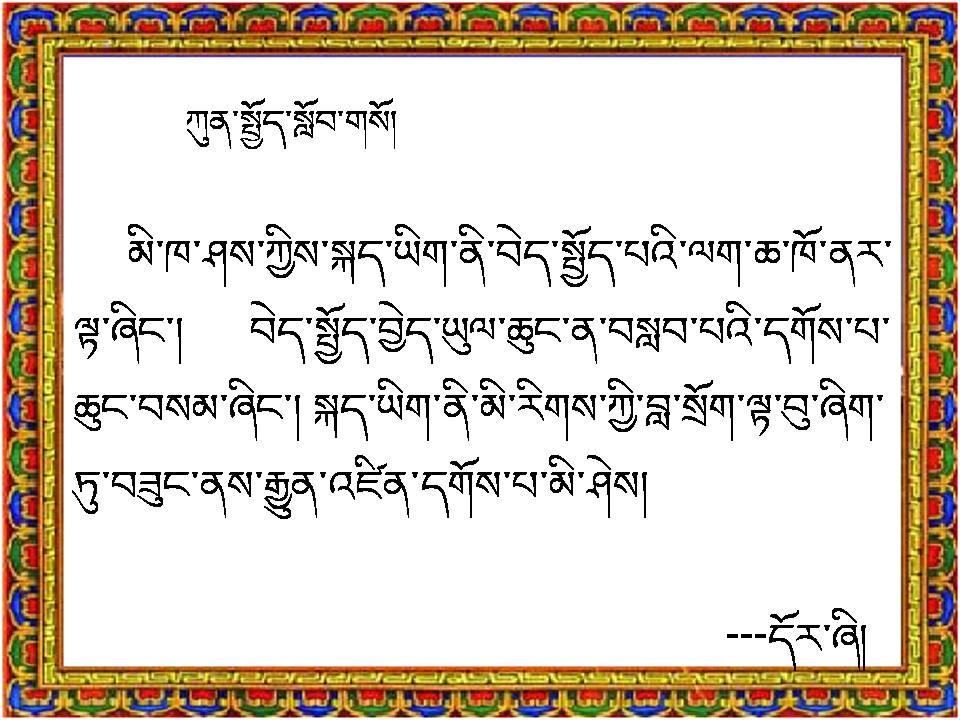 ཀུན་སྤྱོད་སློབ་གསོ།
མི་ཁ་ཤས་ཀྱིས་སྐད་ཡིག་ནི་བེད་སྤྱོད་པའི་ལག་ཆ་ཁོ་ནར་
ལྟ་ཞིང་། བེད་སྤྱོད་བྱེད་ཡུལ་ཆུང་ན་བསླབ་པའི་དགོས་པ་
ཆུང་བསམ་ཞིང་། སྐད་ཡིག་ནི་མི་རིགས་ཀྱི་བླ་སྲོག་ལྟ་བུ་ཞིག་
ཏུ་བཟུང་ནས་རྒྱུན་འཛིན་དགོས་པ་མི་ཤེས།
---དོར་ཞི།